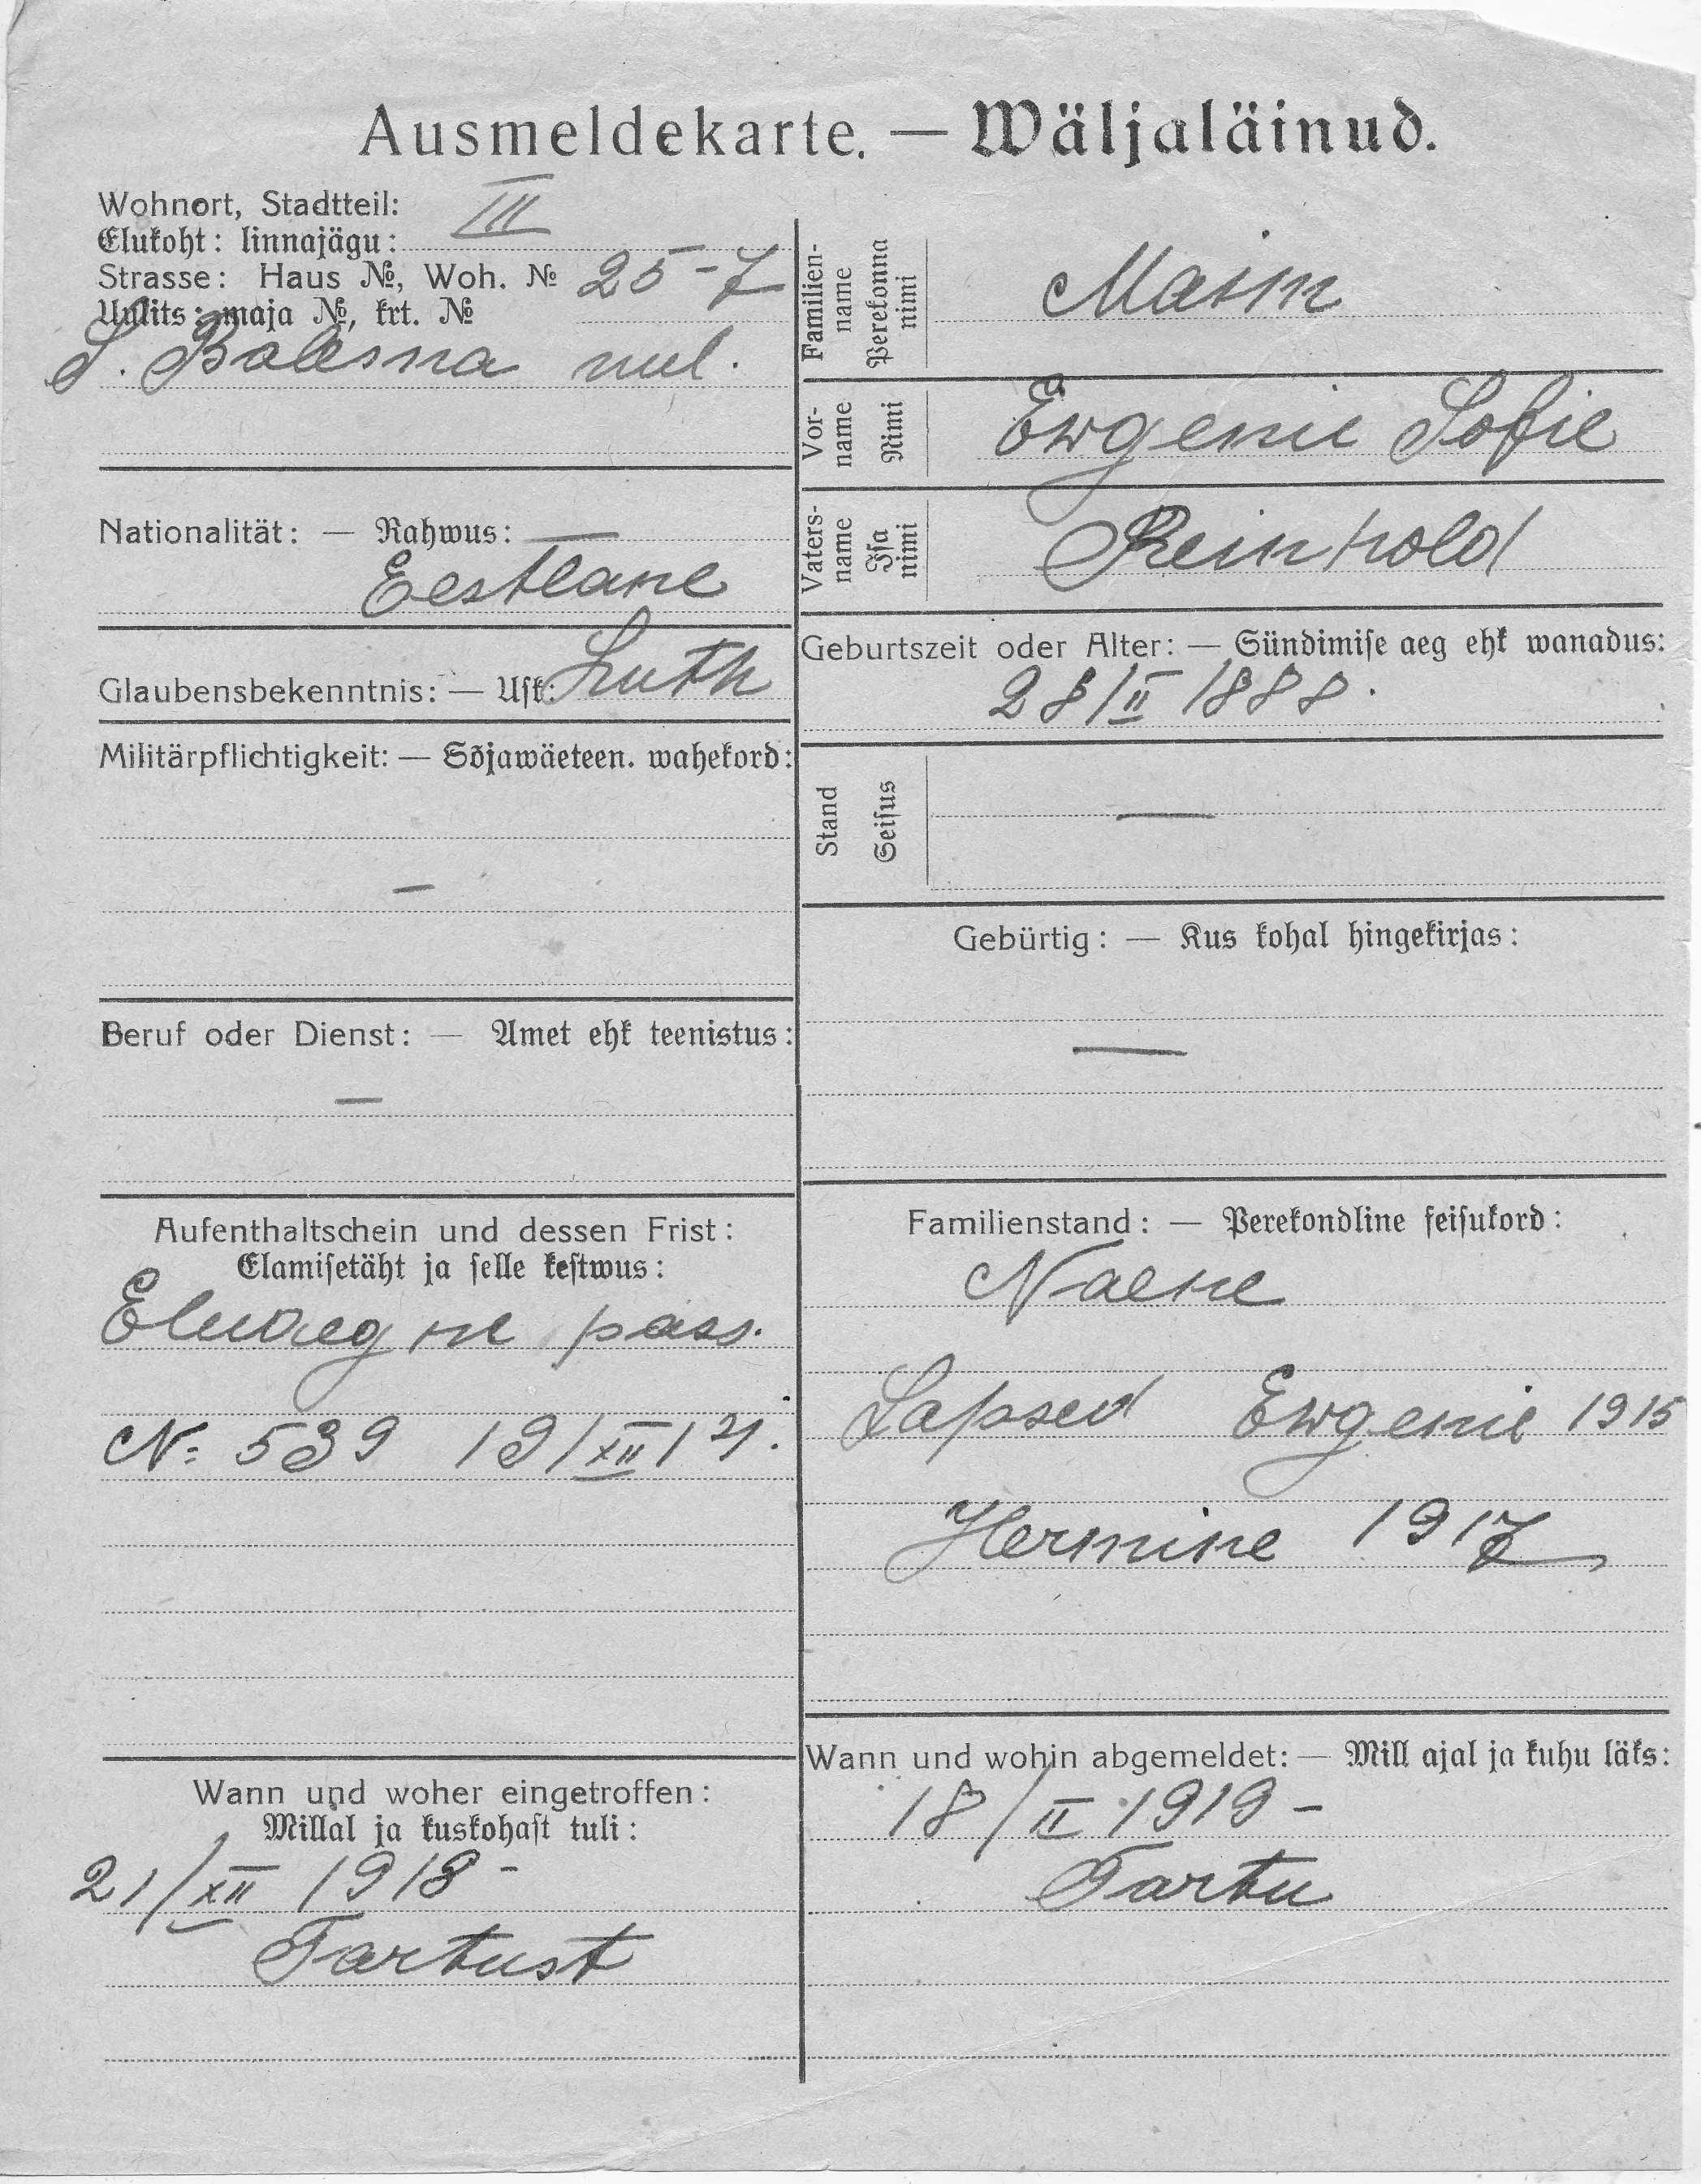 Ausmeldekarte. — Wäljaläinud.
Wohnort, Stadtteil: III
Elukoht: linnajägu:
Strasse: Haus №, Woh. № 25-7
Uulits: maja №, krt. №
uul.
Nationalität: — Rahwus:
Eestlane
Glaubensbekenntnis: — Usk: Luth
Militärpflichtigkeit: — Sõjawäeteen. wahekord:
—
Beruf oder Dienst: — Amet ehk teenistus:
—
Aufenthaltschein und dessen Frist:
Elamisetäht ja selle kestwus:
pass.
N: 539 19/XII
Wann und woher eingetroffen:
Millal ja kuskohast tuli:
21/XII 1918 -
Tartust
Familien-
name
Perekonna
nimi
Ewgenie Sofie
Vor-
name
Nimi
Reinhold
Vaters-
name
Isa
nimi
Geburtszeit oder Alter: — Sündimise aeg ehk wanadus:
28/II 1888.
Stand
Seisus
—
Gebürtig: — Kus kohal hingekirjas:
—
Familienstand: — Perekondline seisukord:
Naene
Lapsed Ewgenie 1915
Hermine 1917
Wann und wohin abgemeldet: — Mill ajal ja kuhu läks:
18/II 1919 -
Tartu